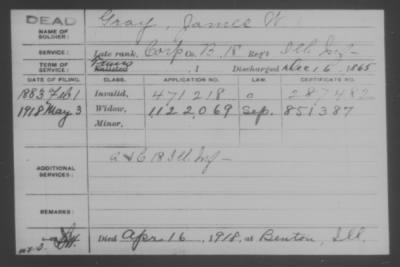 DEAD
NAME OF SOLDIER:
Gray, James W.
SERVICE:
Late rank, Corp Co. B, 18 Reg't Ill. Inf
TERM OF SERVICE:
Enlisted , 1 Discharged Dec 16, 1865
DATE OF FILING. CLASS. APPLICATION NO. LAW. CERTIFICATE NO.
1883 Feb 1 Invalid, 471218 287482
1918 May 3 Widow, 1122,069 Sep. 851387
Minor,
ADDITIONAL SERVICES:
A & C 18 Ill. Inf
REMARKS:
Died Apr 16, 1918, at Benton, Ill.